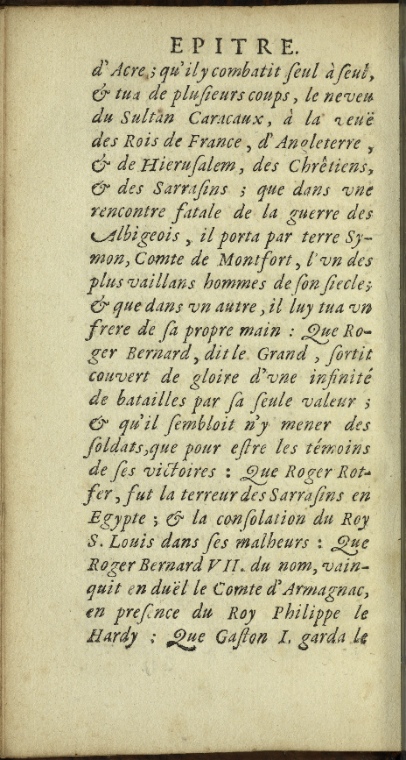 EPITRE.
d'Acre ; qu'il y combatit ſeul à ſeul,
& tua de pluſieurs coups, le neveu
du Sultan Caracaux, à la veuë
des Rois de France, d'Angleterre,
& de Hieruſalem, des Chrêtiens,
& des Sarraſins ; que dans vne
rencontre fatale de la guerre des
Albigeois, il porta par terre Sy-
mon, Comte de Montfort, l'vn des
plus vaillans hommes de ſon ſiecle;
& que dans vn autre, il luy tua vn
frere de ſa propre main : Que Ro-
ger Bernard, dit le Grand, ſortit
couvert de gloire d'vne infinité
de batailles par ſa ſeule valeur ;
& qu'il ſembloit n'y mener des
ſoldats, que pour eſtre les témoins
de ſes victoires : Que Roger Rot-
fer, fut la terreur des Sarraſins en
Egypte ; & la conſolation du Roy
S. Louis dans ſes malheurs : Que
Roger Bernard VII. du nom, vain-
quit en duël le Comte d'Armagnac,
en preſence du Roy Philippe le
Hardy : Que Gaſton I. garda le